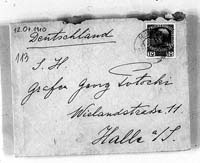 12.01.1910
Deutschland
113
S. H.
Grafen Georg Potocki
Wielandstraße 11
Halle a/S.